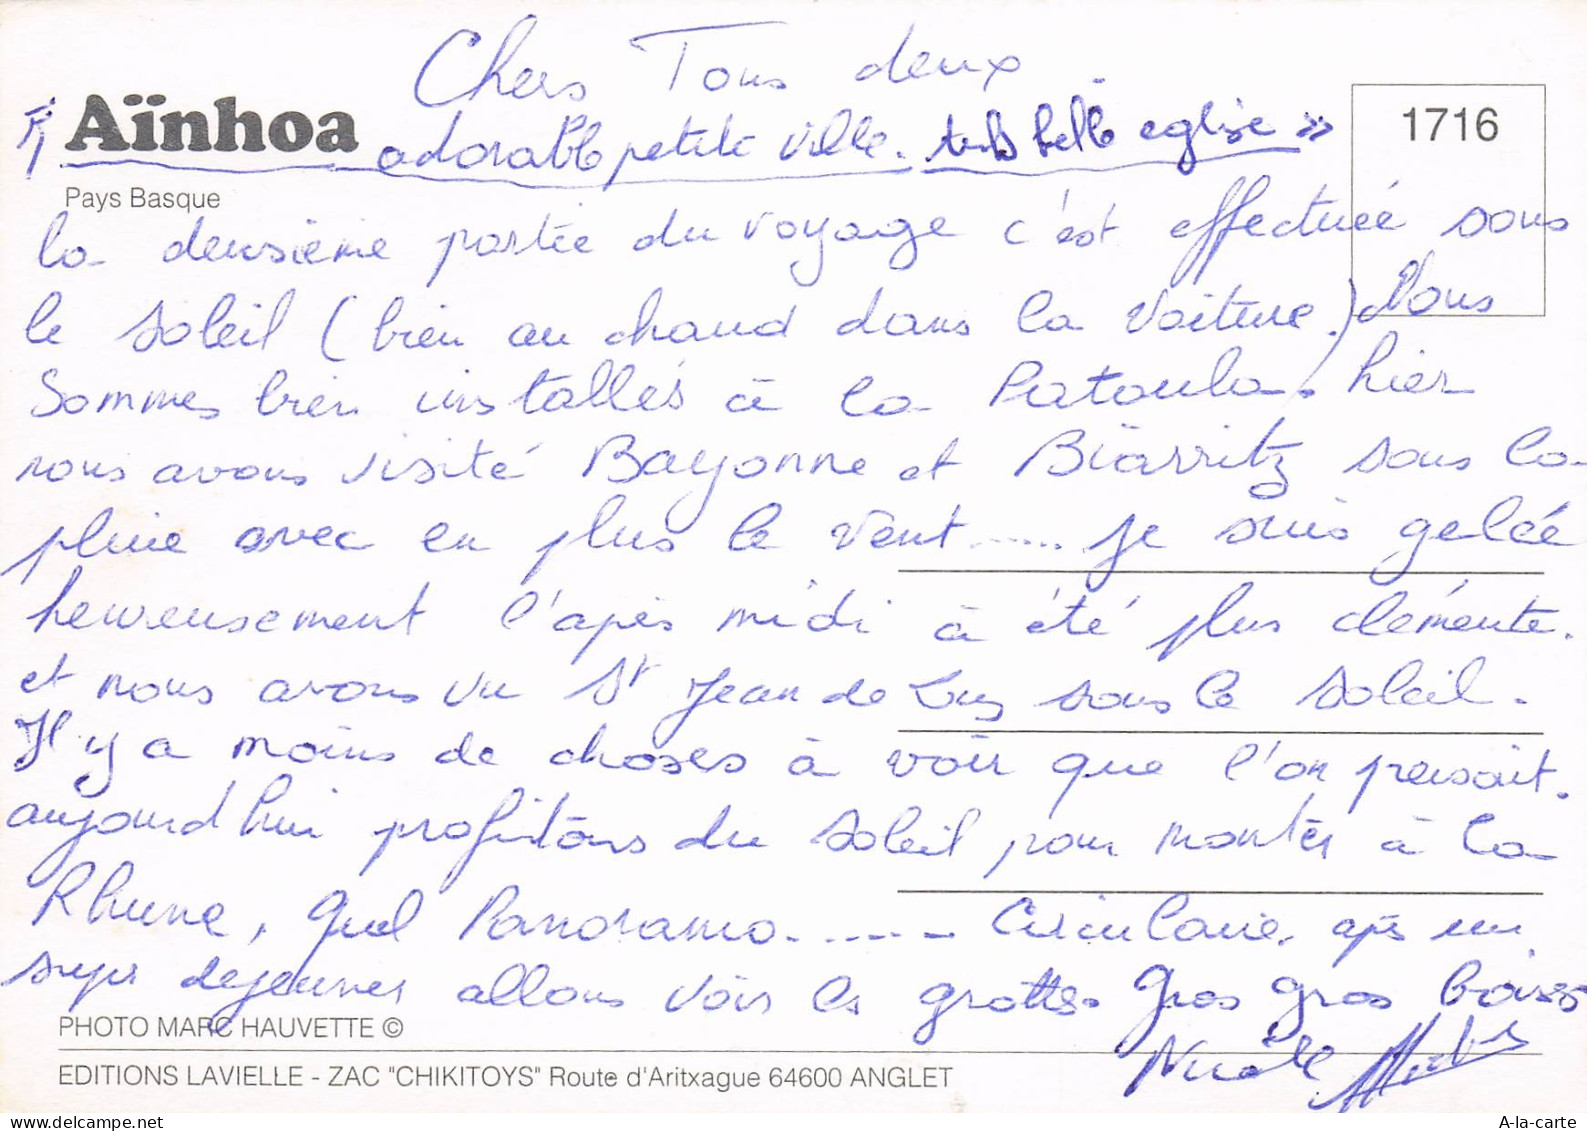 Chers Tous deux.
Aïnhoa adorable petite ville. très belle eglise »
1716
Pays Basque
la deusieme partée du voyage c'est effectuéé sous
le soleil (bien au chaud dans la voiture.) Nous
Sommes bien installés à la Patoula. hier
nous avons visité Bayonne et Biarritz sous la
pluie avec en plus le vent...... je suis gelée
heureusement l'après midi à été plus clémente.
et nous avons vu St Jean de Luz sous le soleil.
Il y a moins de choses à voir que l'on pensait.
aujourd'hui profitons du soleil pour monter à la
Rhune, quel Panorama...... Circulaire. après un
super dejeuner allons voir les grottes Gros gros baises
PHOTO MARC HAUVETTE ©
Nicole
EDITIONS LAVIELLE - ZAC "CHIKITOYS" Route d'Aritxague 64600 ANGLET
A-la-carte